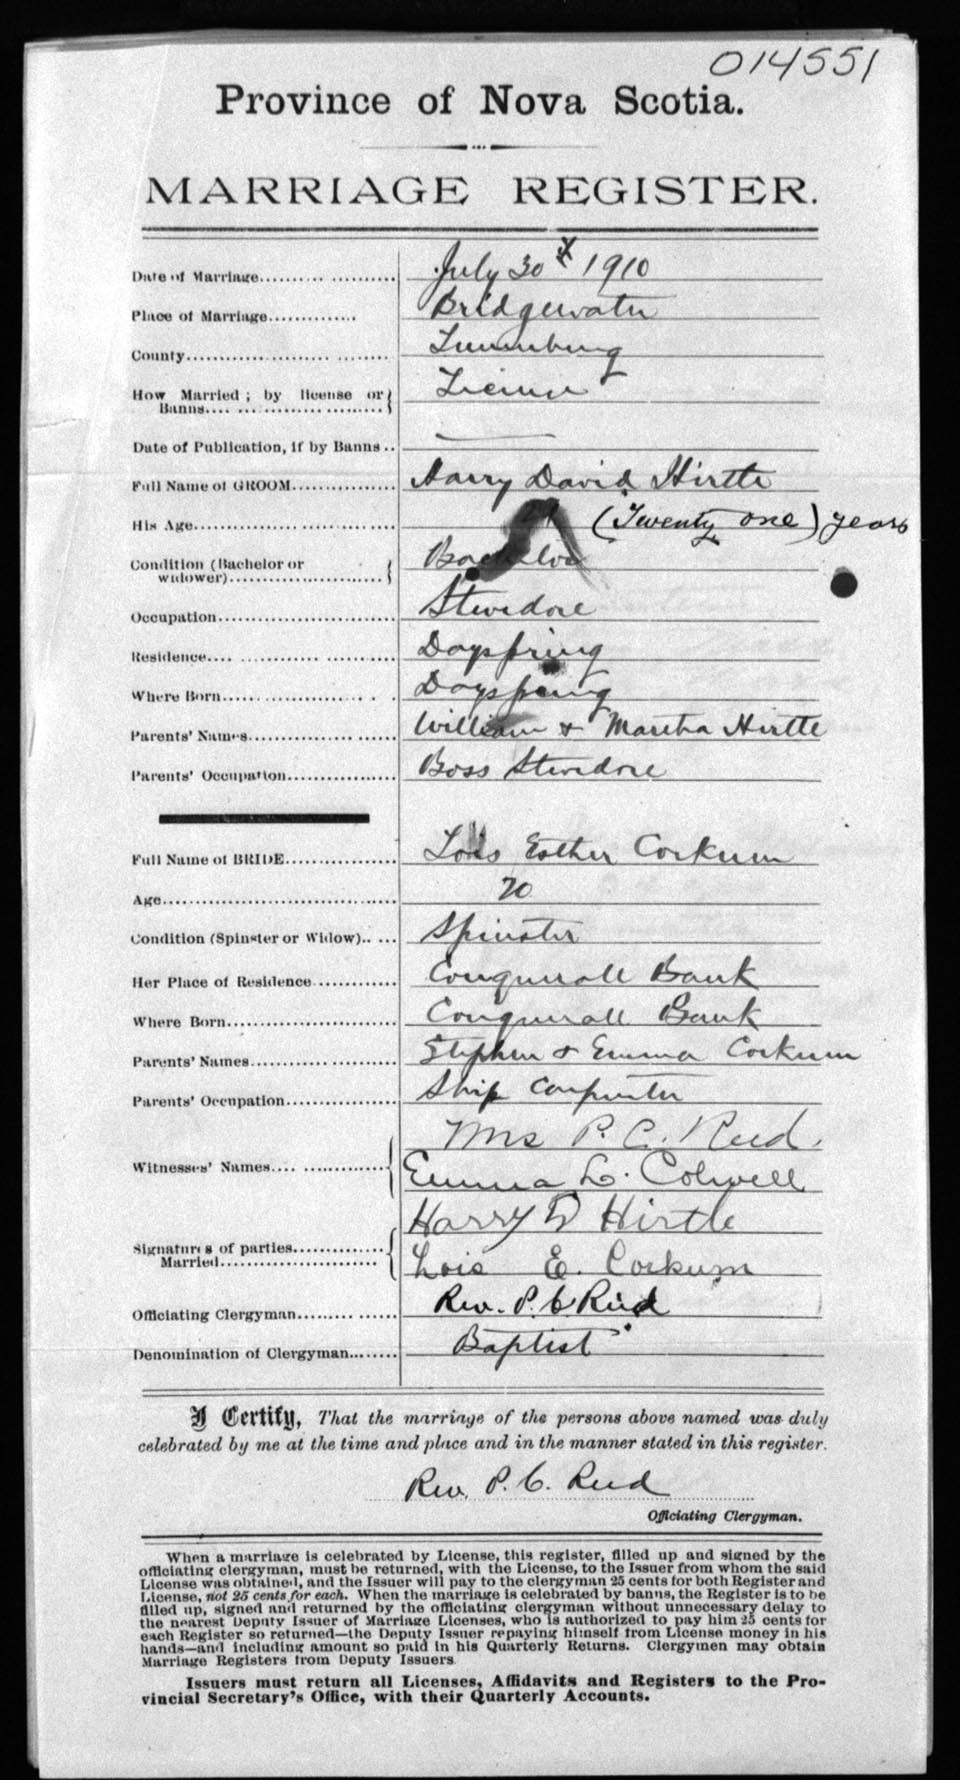 014551
Province of Nova Scotia.
MARRIAGE REGISTER.
Date of Marriage.......... July 30th 1910
Place of Marriage............. Bridgewater
County.................... Lunenburg
How Married; by license or Banns.................... License
Date of Publication, if by Banns .. —
Full Name of GROOM................ Harry David Hirtle
His Age.................... 21 (Twenty one) years
Condition (Bachelor or widower).................... Bachelor
Occupation........................... Stevedore
Residence.................... Dayspring
Where Born.................... Dayspring
Parents' Names.................... William & Martha Hirtle
Parents' Occupation................ Boss Stevedore
Full Name of BRIDE................ Lois Esther Corkum
Age.................................... 20
Condition (Spinster or Widow)...... Spinster
Her Place of Residence............. Conquerall Bank
Where Born.......................... Conquerall Bank
Parents' Names...................... Stephen & Emma Corkum
Parents' Occupation................. Ship Carpenter
Witnesses' Names.... ............. Mrs P. C. Reed.
Emma L. Colwell
Signatures of parties Married...................... Harry D Hirtle
Lois E. Corkum
Officiating Clergyman............... Rev. P. C Reed
Denomination of Clergyman........ Baptist
I Certify, That the marriage of the persons above named was duly
celebrated by me at the time and place and in the manner stated in this register.
Rev. P. C. Reed
Officiating Clergyman.
When a marriage is celebrated by License, this register, filled up and signed by the
officiating clergyman, must be returned, with the License, to the Issuer from whom the said
License was obtained, and the Issuer will pay to the clergyman 25 cents for both Register and
License, not 25 cents for each. When the marriage is celebrated by banns, the Register is to be
filled up, signed and returned by the officiating clergyman without unnecessary delay to
the nearest Deputy Issuer of Marriage Licenses, who is authorized to pay him 25 cents for
each Register so returned—the Deputy Issuer repaying himself from License money in his
hands—and including amount so paid in his Quarterly Returns. Clergymen may obtain
Marriage Registers from Deputy Issuers.
Issuers must return all Licenses, Affidavits and Registers to the Pro-
vincial Secretary's Office, with their Quarterly Accounts.